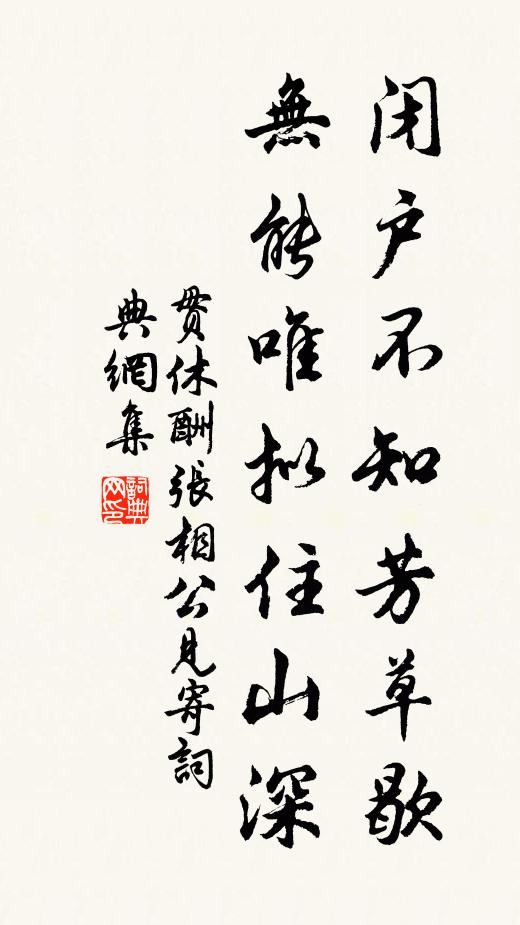 闭户不知芳草歇
無能唯拟住山深
贯休酬張相公見寄詞
典網集
詞典
网印